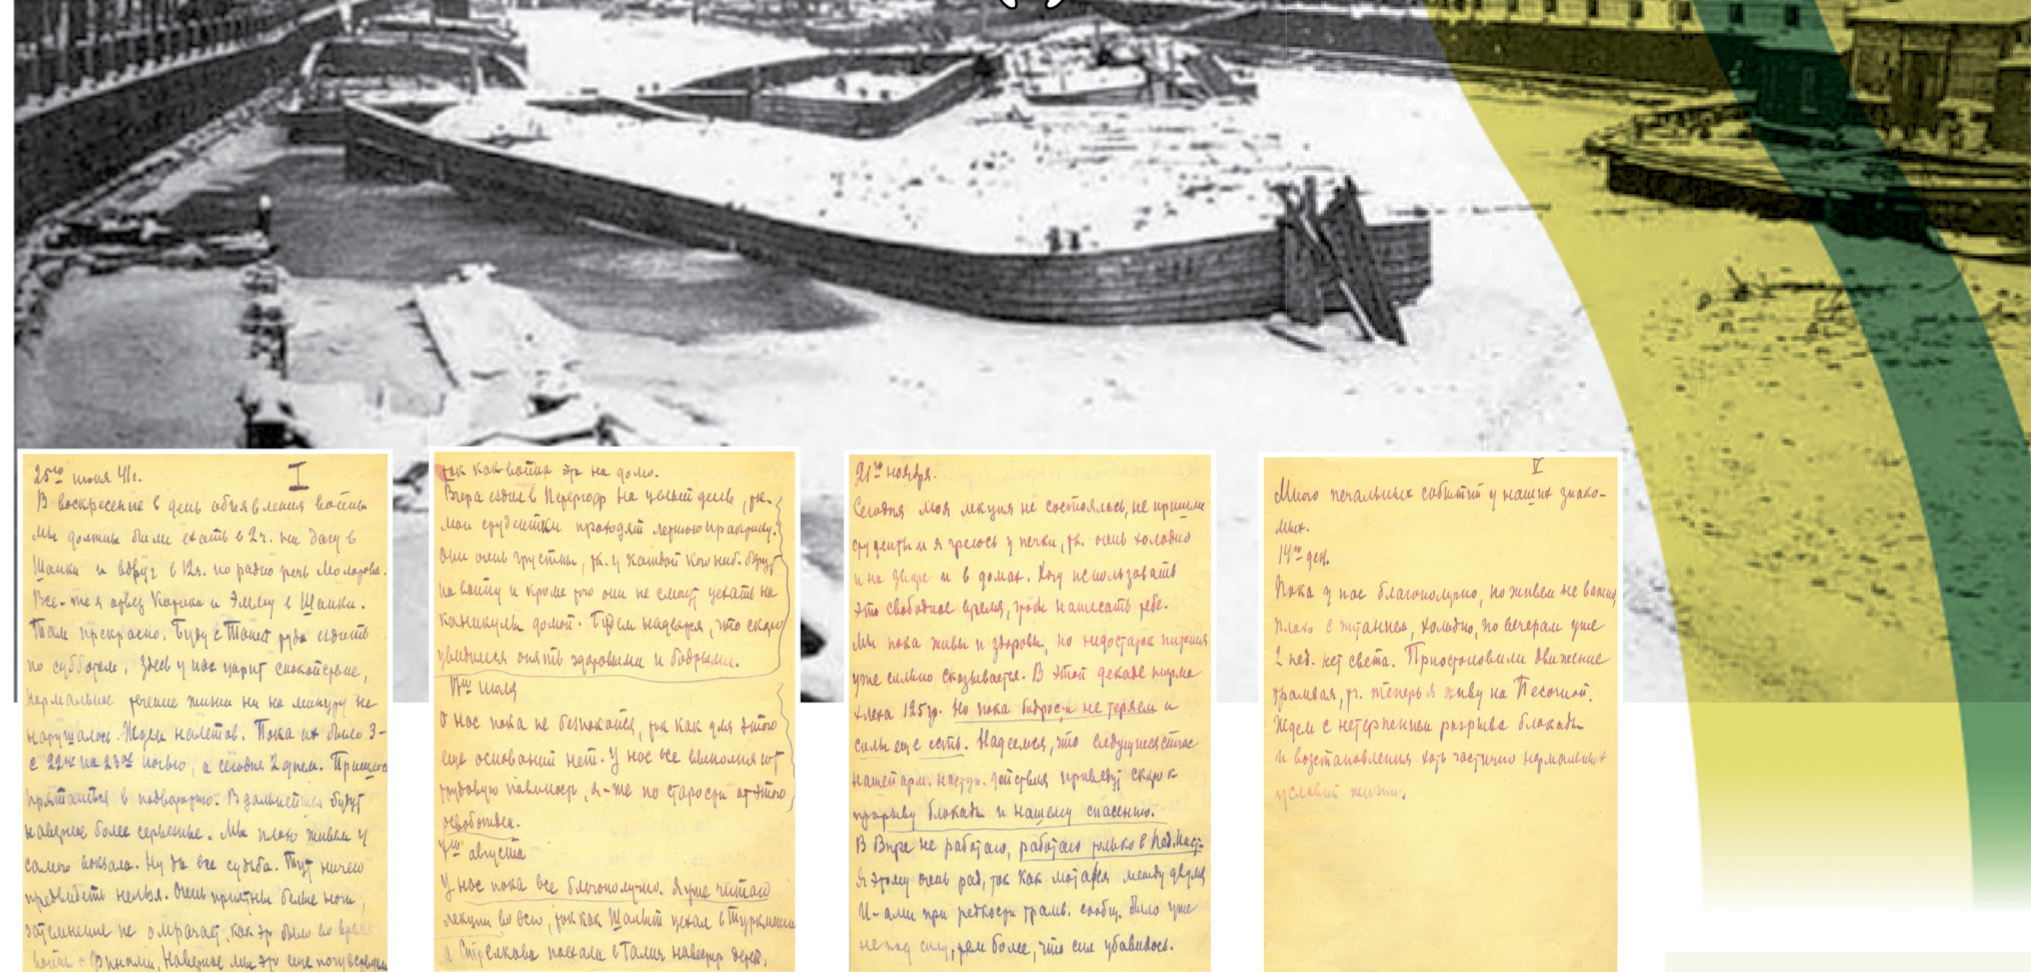 25го июня 41г. I
В воскресение в день объявления войны
мы должны были ехать в 2ч. на дачу в
Шапки и вдруг в 12ч. по радио речь Молотова.
Все-же я отвез Карика и Эллу в Шапки.
Там прекрасно. Буду с Таней туда ездить
по субботам. Здесь у нас царит спокойствие,
нормальное течение жизни ни на минуту не
нарушалось. Ждем налетов. Пока их было 3-
с 22го на 23ье ночью, а сегодня 2 днем. Пришлось
прятаться в подворотню. В дальнейшем будут
наверное более серьезные. Мы плохо живем у
самого вокзала. Ну да все судьба. Тут ничего
предвидеть нельзя. Очень приятны белые ночи,
затемнение не омрачает, как это было во время
войны с Финнами. Наверное мы это еще почувствуем
так как война эта на долго.
Вчера ездил в Петергоф на целый день, т.к.
мои студентки проходят летнюю практику.
Они очень грустны, т.к. у каждой кого ниб. берут
на войну и кроме того они не смогут уехать на
каникулы домой. Будем надеятся, что скоро
увидимся опять здоровыми и бодрыми.
июля
О нас пока не безпокойся, так как для этого
еще оснований нет. У нас все выполняют
трудовую повинность, я-же по старости от этого
освобожден.
августа
У нас пока все благополучно. Я уже читаю
лекции во всю, так как уехал в
а Стрелкова поехала в Галич навестить детей.
21го ноября.
Сегодня моя лекция не состоялась, не пришли
студенты и я греюсь у печки, т.к. очень холодно
и на дворе и в домах. Хочу использовать
это свободное время, чтобы написать тебе.
Мы пока живы и здоровы, но недостаток питания
уже сильно сказывается. В этой декаде норма
хлеба 125гр. Но пока бодрости не теряем и
силы еще есть. Надеемся, что
нашей арм. наступ. действия приведут скоро к
прорыву блокады и нашему спасению.
В не работаю, работаю только в Пед.Инст.
Я этому очень рад, так как мотаться между двумя
И-ами при редкости трамв. сообщ. было уже
не под силу, тем более, что сил убавилось.
V
Много печальных событий у наших знако-
мых.
14го дек.
Пока у нас благополучно, но живем не важно,
плохо с питанием, холодно, по вечерам уже
2 нед. нет света. Приостановили движение
трамвая, т.ч. теперь я живу на Песочной.
Ждем с нетерпением разрыва блокады
и возстановления хоть частично нормальных
условий жизни.